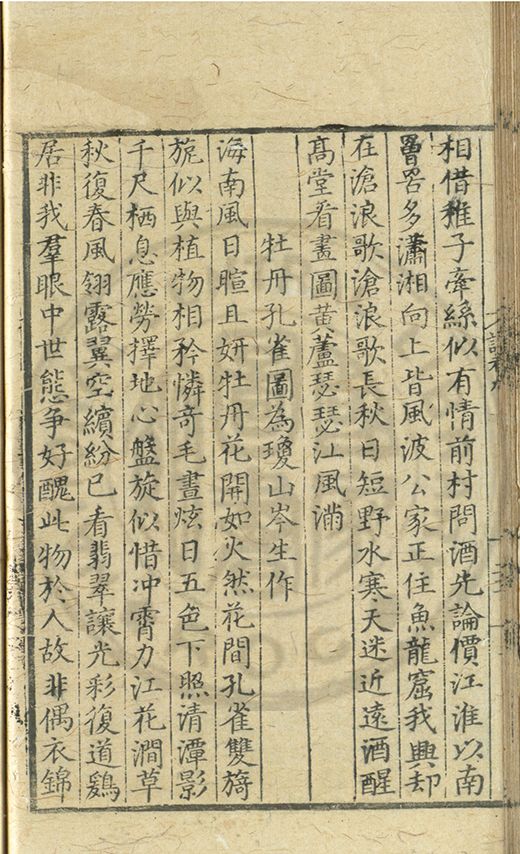 相借稚子牽絲似有情前村問酒先論價江淮以南
罾罟多瀟湘向上皆風波公家正住魚龍窟我興却
在滄浪歌滄浪歌長秋日短野水寒天迷近遠酒醒
髙堂看畫圖黄蘆瑟瑟江風滿
牡丹孔雀圖為瓊山岑生作
海南風日暄且妍牡丹花開如火然花間孔雀雙旖
旎似與植物相矜憐奇毛晝炫日五色下照清潭影
千尺栖息應勞擇地心盤旋似惜冲霄力江花澗草
秋復春風翎露翼空繽紛已看翡翠讓光彩復道鷄
居非我羣眼中世態爭好醜此物於人故非偶衣錦